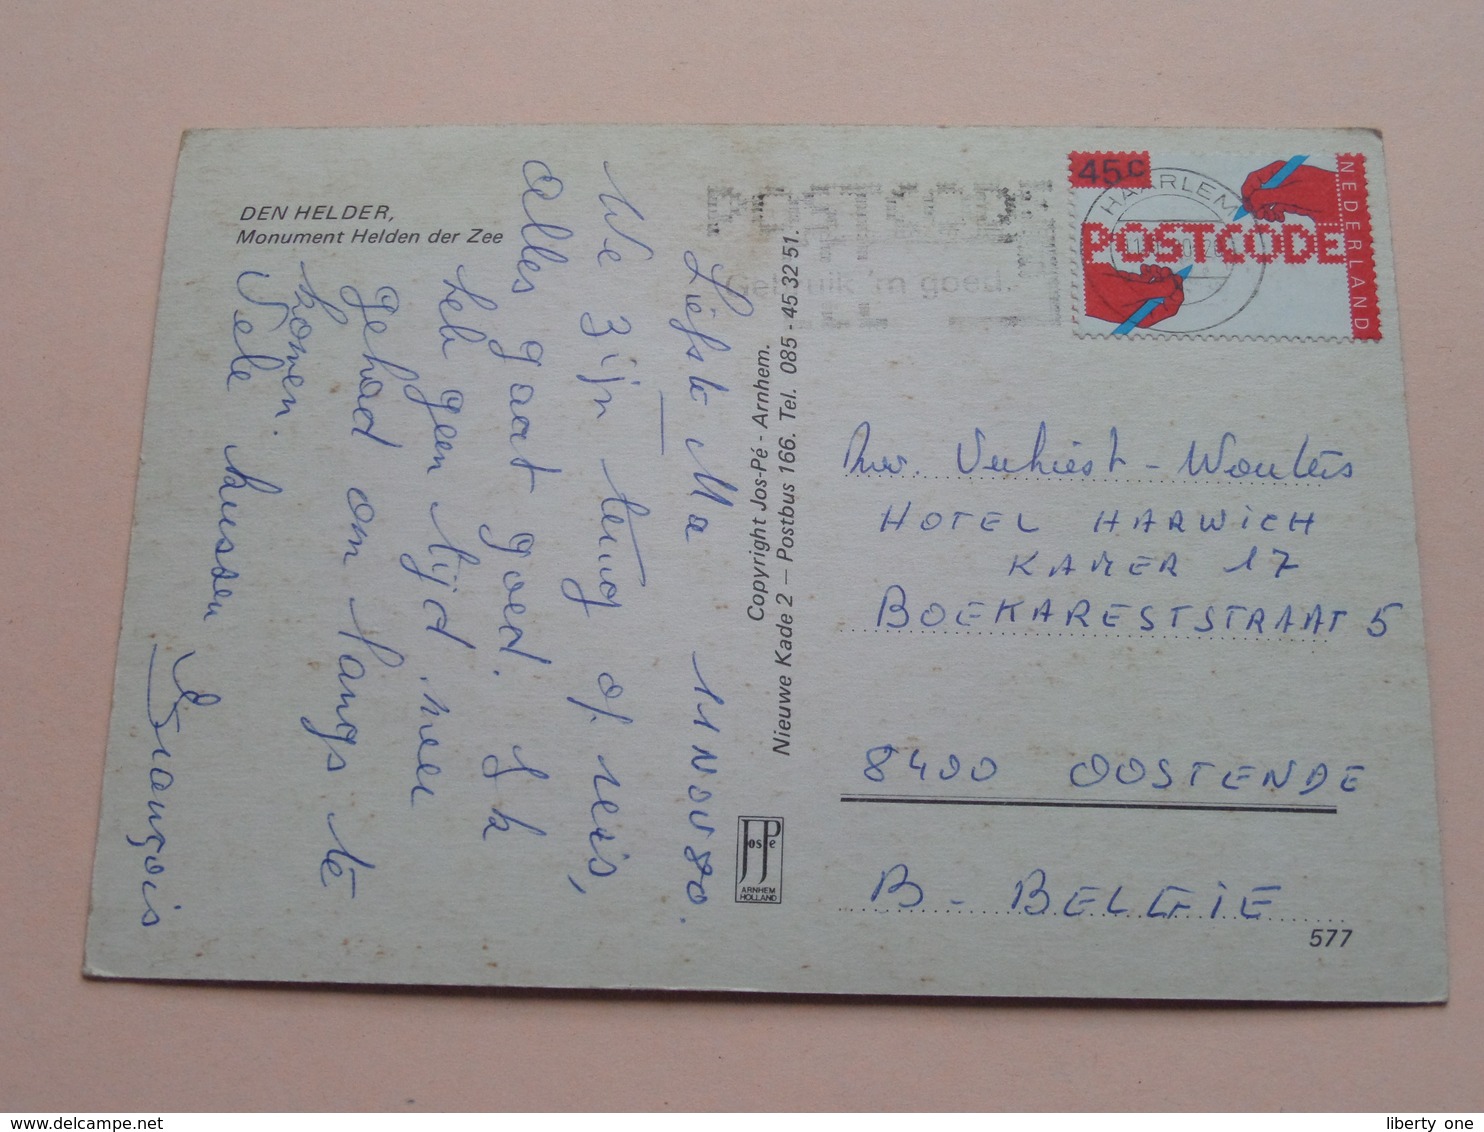 DEN HELDER,
Monument Helden der Zee
Liefste Ma 11 NOV 80.
We zijn terug op reis,
alles gaat goed. Ik
heb geen tijd meer
gehad om langs te
komen.
Vele kussen
François
Copyright Jos-Pé - Arnhem.
Nieuwe Kade 2 – Postbus 166. Tel. 085 - 45 32 51.
JosPé
ARNHEM
HOLLAND
POSTCODE
Gebruik 'm goed.
HAARLEM
45c
POSTCODE
NEDERLAND
Mw. Verhiest - Wouters
HOTEL HARWICH
KAMER 17
BOEKARESTSTRAAT 5
8400 OOSTENDE
B - BELGIE
577
liberty one